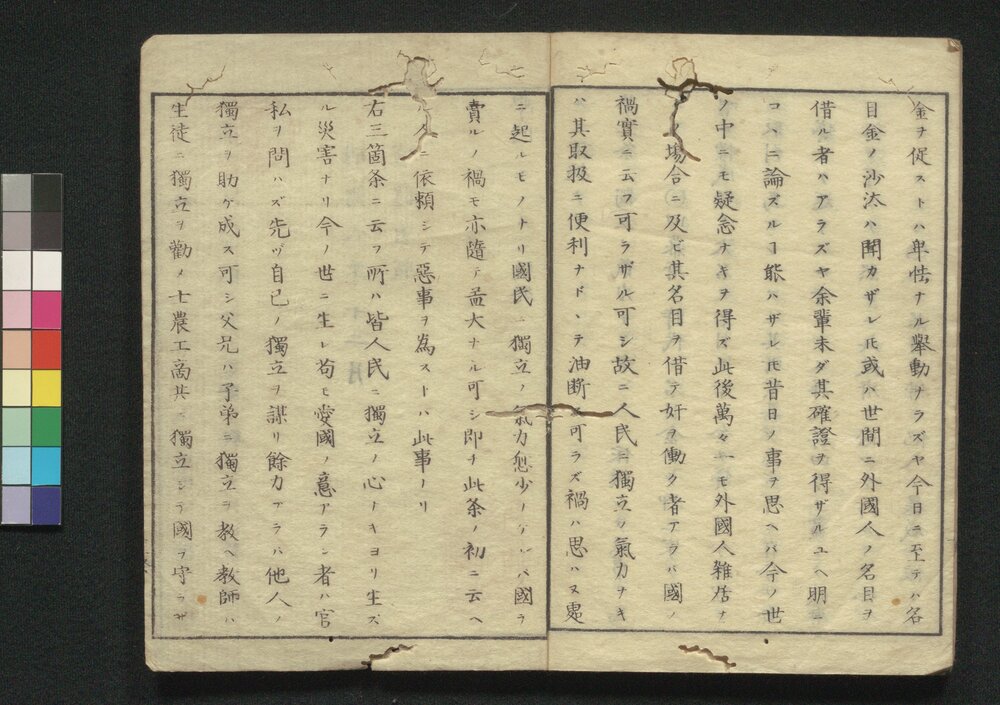 金ヲ促ストハ卑怯ナル舉動ナラズヤ今日ニ至テハ名
目金ノ沙汰ハ聞カザレ𪜈或ハ世間ニ外國人ノ名目ヲ
借ル者ハアラズヤ余輩未ダ其確證ヲ得ザルユヘ明ニ
コヽニ論ズルヿ能ハザレ𪜈昔日ノ事ヲ思ヘバ今ノ世
ノ中ニモ疑念ナキヲ得ズ此後萬々一モ外國人雜居ナ
ノ場合ニ及ビ其名目ヲ借テ奸ヲ働ク者アラバ國ノ
禍實ニ云フ可ラザル可シ故ニ人民ニ獨立ノ氣力ナキ
ハ其取扱ニ便利ナドヽテ油断 可ラズ禍ハ思ハヌ處
ニ起ルモノナリ國民ニ獨立ノ氣力愈少ノケレバ國ヲ
賣ルノ禍モ亦隨テ益大ナル可シ即チ此条ノ初ニ云ヘ
ル人ニ依頼シテ惡事ヲ為ストハ此事ナリ
右三箇条ニ云フ所ハ皆人民ニ獨立ノ心ナキヨリ生ズ
ル災害ナリ今ノ世ニ生レ苟モ愛國ノ意アラン者ハ官
私ヲ問ハズ先ヅ自己ノ獨立ヲ謀リ餘力アラバ他人ノ
獨立ヲ助ケ成ス可シ父兄ハ子弟ニ獨立ヲ教ヘ教師ハ
生徒ニ獨立ヲ勸メ士農工商共ニ獨立シテ國ヲ守ラザ